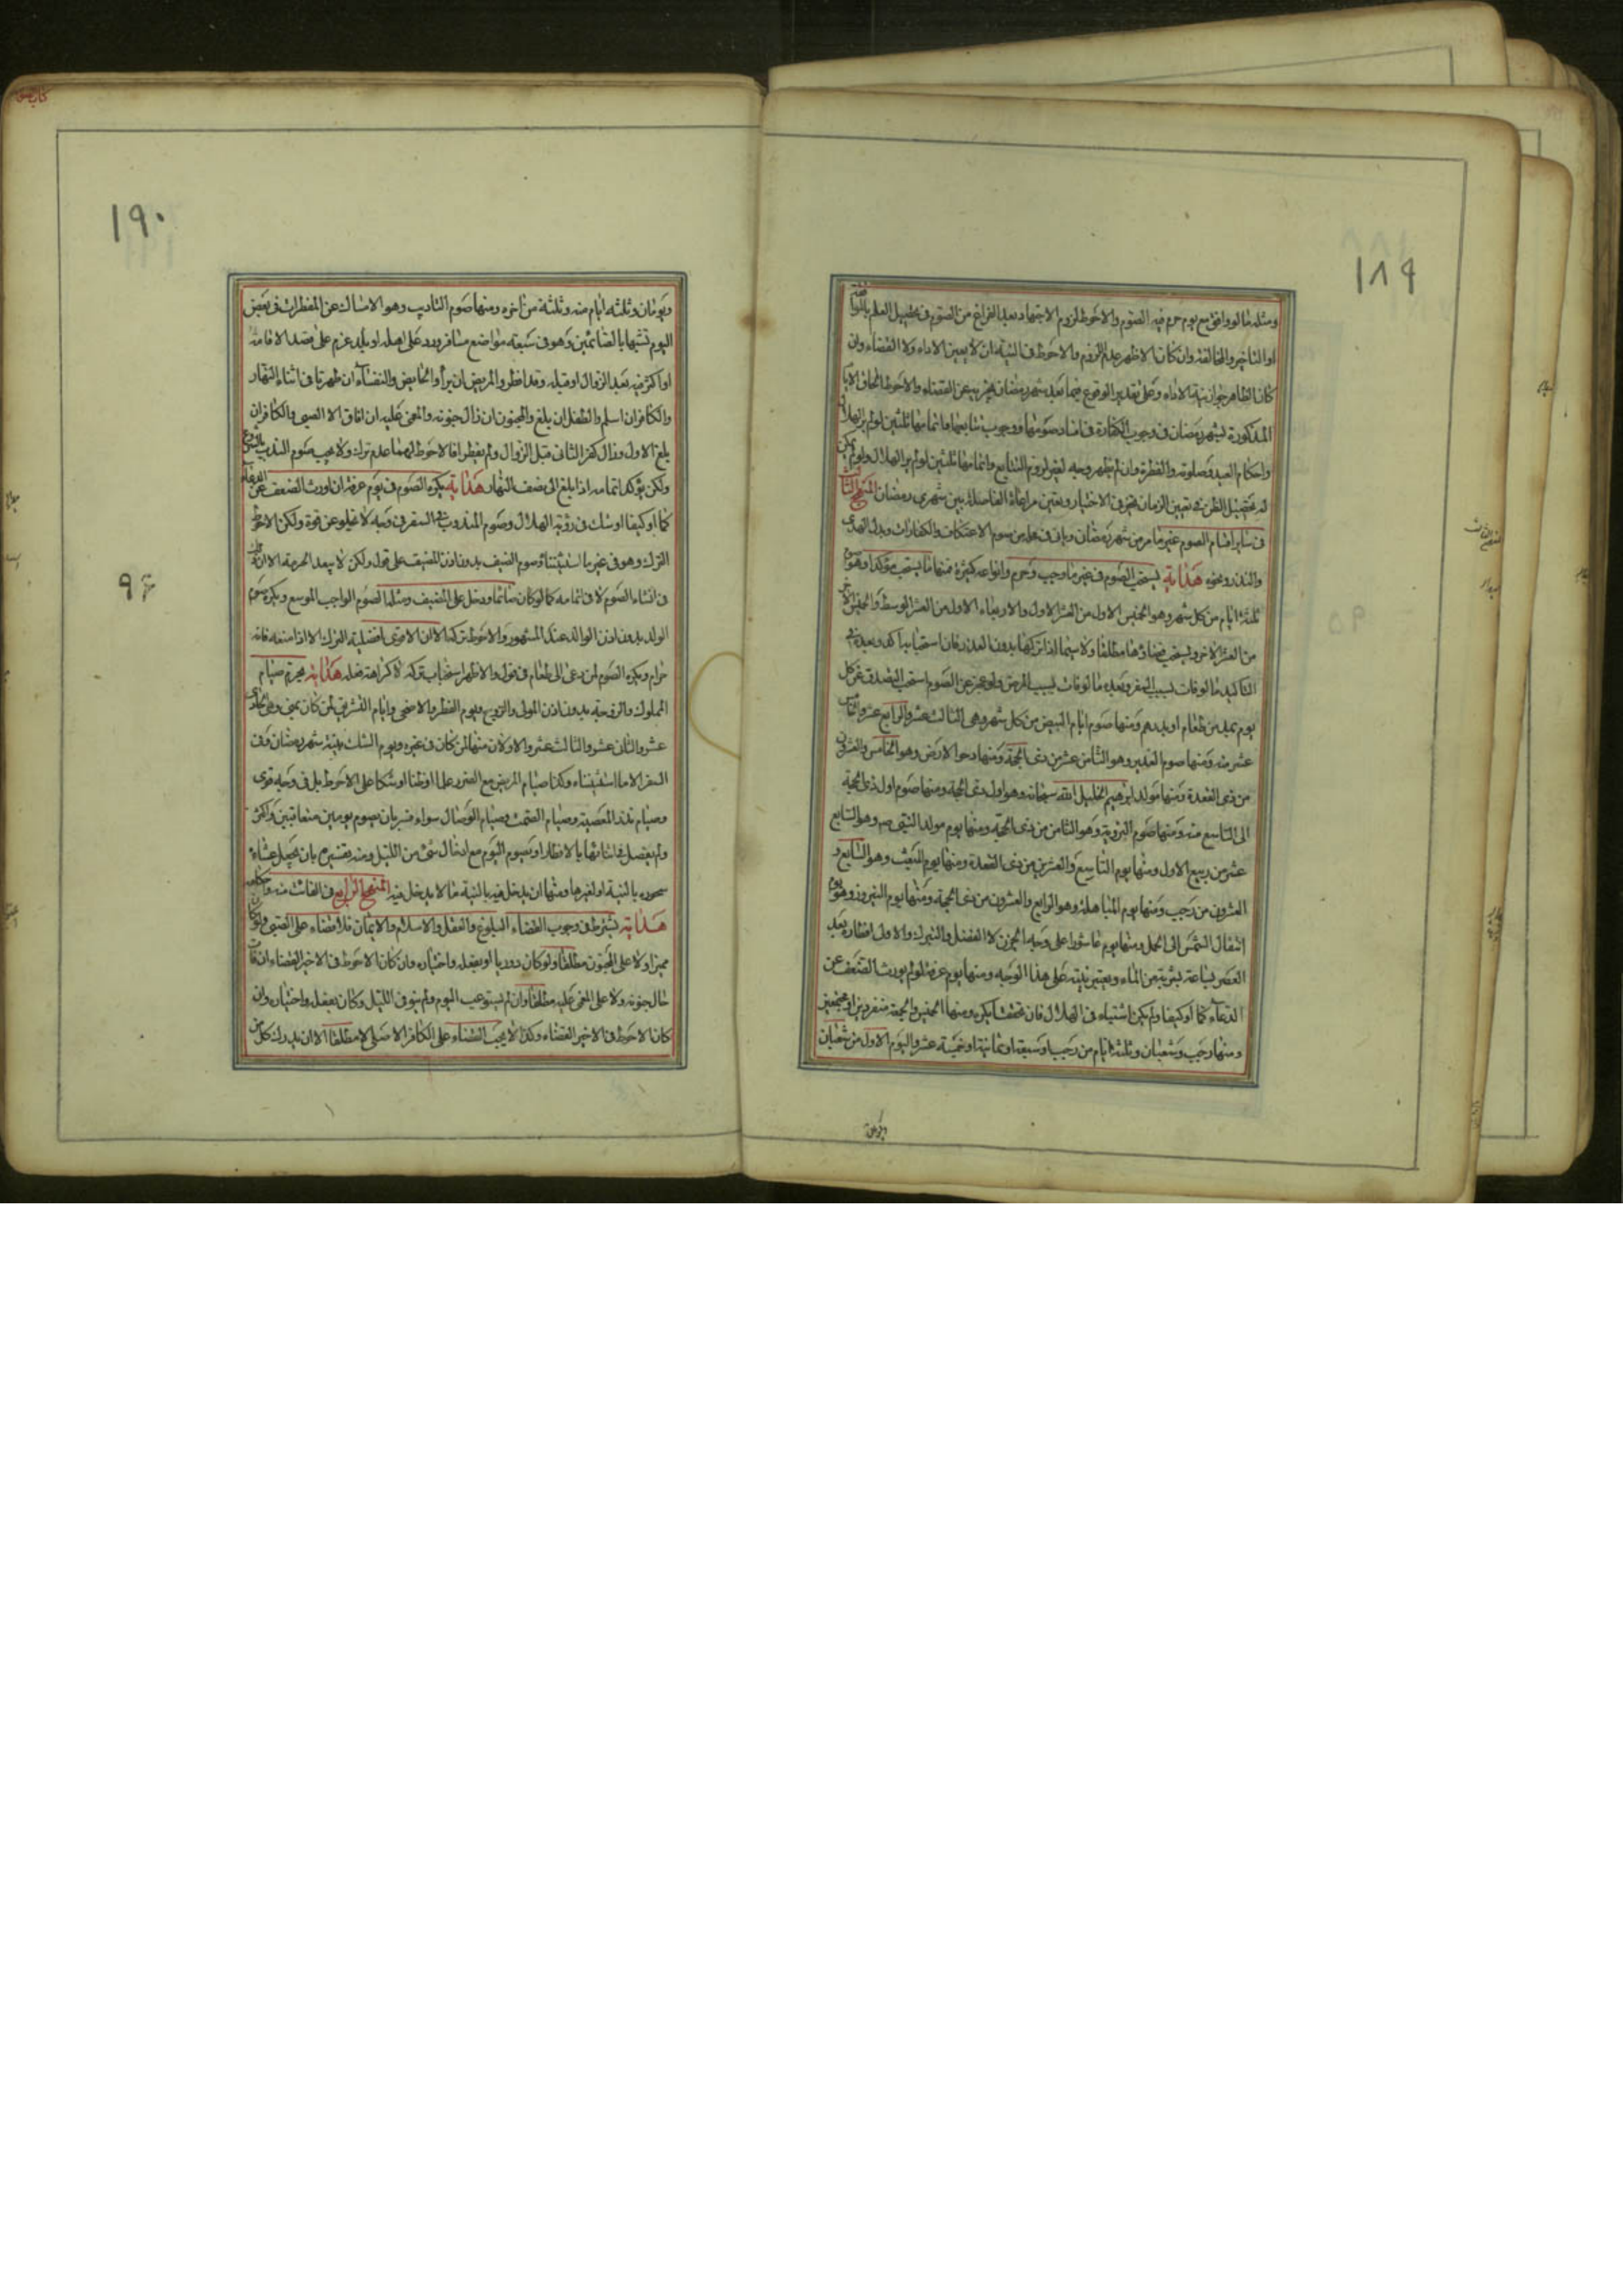 ١٨٩
ومثله ما لو وافق مع يوم حرم فيه الصوم والاحوط لزوم الاجتهاد بعد الفراغ من الصوم في تحصيل العلم بالموافقة
او التاخير والمخالفة وان كان الاظهر عدم اللزوم والاحوط في النية ان لا يعين الاداء ولا القضاء وان
كان الظاهر جواز نية الاداء وعلى تقدير الوقوع فيما بعد شهر رمضان يجزيه عن القضاء والاحوط الحاق الايام
المذكورة بشهر رمضان في وجوب الكفارة في افساد صومها ووجوب متابعتها واتمامها ثلثين لو لم ير الهلال
واحكام العيد وصلوته والفطرة وان لم يظهر وجه لغير لزوم التتابع واتمامها ثلثين لو لم ير الهلال ولو لم يمكن
له تحصيل الظن في تعيين الزمان تخير في الاختيار ويتعين مراعاة الفاصلة بين شهري رمضان المنهج الثالث
في ساير اقسام الصوم غير ما مر من شهر رمضان وياتي في محله من صوم الاعتكاف والكفارات وبدل الهدى
والنذر ونحوه هداية يستحب الصوم في غير ما وجب وحرم وانواعه كثيرة منها ما يستحب مؤكدا وهو صوم
ثلثة ايام من كل شهر وهو الخميس الاول من العشر الاول والاربعاء الاول من العشر الوسط والخميس الاخر
من العشر الاخر ويستحب قضاؤها مطلقا ولا سيما اذا تركها بدون العذر فان استحبابه اكد وبعده في
التاكيد ما لو فات لسبب السفر وبعده ما لو فات لسبب المرض ولو عجز عن الصوم استحب التصدق عن كل
يوم بمد من طعام او بدرهم ومنها صوم ايام البيض من كل شهر وهي الثالث عشر والرابع عشر والخامس
عشر منه ومنها صوم الغدير وهو الثامن عشر من ذي الحجة ومنها دحو الارض وهو الخامس والعشرون
من ذي القعدة ومنها مولد ابرهيم الخليل الله سبحانه وهو اول ذي الحجة ومنها صوم اول ذي الحجة
الى التاسع منه ومنها صوم التروية وهو الثامن من ذي الحجة ومنها يوم مولد النبي ص وهو السابع
عشر من ربيع الاول ومنها يوم التاسع والعشرين من ذي القعدة ومنها يوم المبعث وهو السابع و
العشرون من رجب ومنها يوم المباهلة وهو الرابع والعشرون من ذي الحجة ومنها يوم النيروز وهو يوم
انتقال الشمس الى الحمل ومنها يوم عاشورا على وجه الحزن لا الفضل والتبرك والاولى افطاره بعد
العصر بساعة بشربة من الماء ويعتبر نيته على هذا الوجه ومنها يوم عرفة لو لم يورث الضعف عن
الدعاء كما او كيفا ولم يكن اشتباه في الهلال فان تحقق يكره ومنها الخميس والجمعة منفردين او مجتمعين
ومنها رجب وشعبان وثلثة ايام من رجب او سبعة او ثمانية او خمسة عشر واليوم الاول من شعبان
ويومان
١٩٠
٩٦
ويومان وثلثة ايام منه وثلثة من اخره ومنها صوم التاديب وهو الامساك عن المفطرات في بعض
اليوم تشبها بالصائمين وهو في سبعة مواضع مسافر ورد على اهله او بلد عزم على قصد الاقامة
او اكثر فيه بعد الزوال او قبله وقد افطر والمريض ان برأ والحايض والنفساء ان طهرتا في اثناء النهار
والكافر ان اسلم والطفل ان بلغ والمجنون ان زال جنونه والمغمى عليه ان افاق الا الصبي والكافر ان
بلغ الاول وزال كفر الثاني قبل الزوال ولم يفطرا فالاحوط لهما عدم تركه ولا يجب صوم الندب بالشروع
ولكن يؤكد اتمامه اذا بلغ الى نصف النهار هداية يكره الصوم في يوم عرفة ان اورث الضعف عن الدعاء
كما او كيفا او شك في رؤية الهلال وصوم المندوب في السفر في وجه لا يخلو عن قوة ولكن الاحوط
الترك وهو في غير ما استثنينا وصوم الضيف بدون اذن المضيف على قول ولكن لا يبعد الحرمة الا انه
في انشاء الصوم لا في اتمامه كما لو كان صائما ودخل على المضيف ومثلها الصوم الواجب الموسع ويكره صوم
الولد بدون اذن الوالد عند المشهور والاحوط تركه الا ان الاقوى افضلية الترك الا اذا منعه فانه
حرام ويكره الصوم لمن دعى الى طعام في قول والاظهر استحباب تركه لا كراهة فعله هداية يحرم صيام
المملوك والزوجة بدون اذن المولى والزوج ويوم الفطر والاضحى وايام التشريق لمن كان بمنى وهي الحادي
عشر والثاني عشر والثالث عشر والاولان منها لمن كان في غيره ويوم الشك بنية شهر رمضان وفي
السفر الا ما استثنيناه وكذا صيام المريض مع الضرر علما او ظنا او شكا على الاحوط بل في وجه قوى
وصيام نذر المعصية وصيام الصمت وصيام الوصال سواء فسر بان يصوم يومين متعاقبين او اكثر
ولم يفصل في اثنائها بالافطار او يصوم اليوم مع ادخال شئ من الليل ومنه تفسيره بان يجعل عشاءه
سحوره بالنية او لغيرها ومنها ان يدخل فيه بالنية ما لا يدخل فيه المنهج الرابع في الفائت منه واحكامه
هداية يشترط في وجوب القضاء البلوغ والعقل والاسلام والايمان فلا قضاء على الصبي ولو كان
مميزا ولا على المجنون مطلقا ولو كان دوريا او بفعله واختياره وان كان الاحوط في الاخير القضاء ان فات
حال جنونه ولا على المغمى عليه مطلقا وان لم يستوعب اليوم ولم ينو في الليل وكان بفعله واختياره وان
كان الاحوط في الاخير القضاء وكذا لا يجب القضاء على الكافر الاصلي لا مطلقا الا ان يدرك كل من